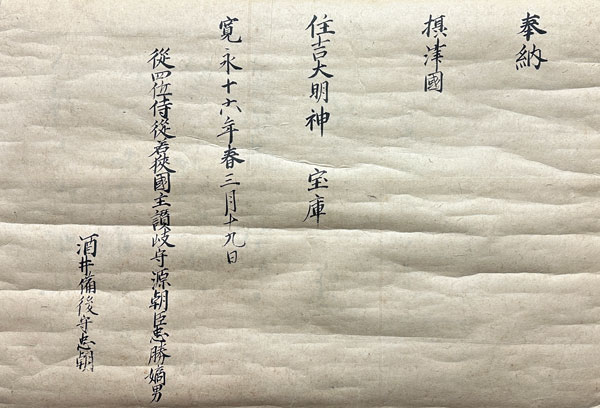 奉納
摂津國
住吉大明神 宝庫
寛永十六年春三月十九日
從四位侍從若狭國主讃岐守源朝臣忠勝嫡男
酒井備後守忠朝